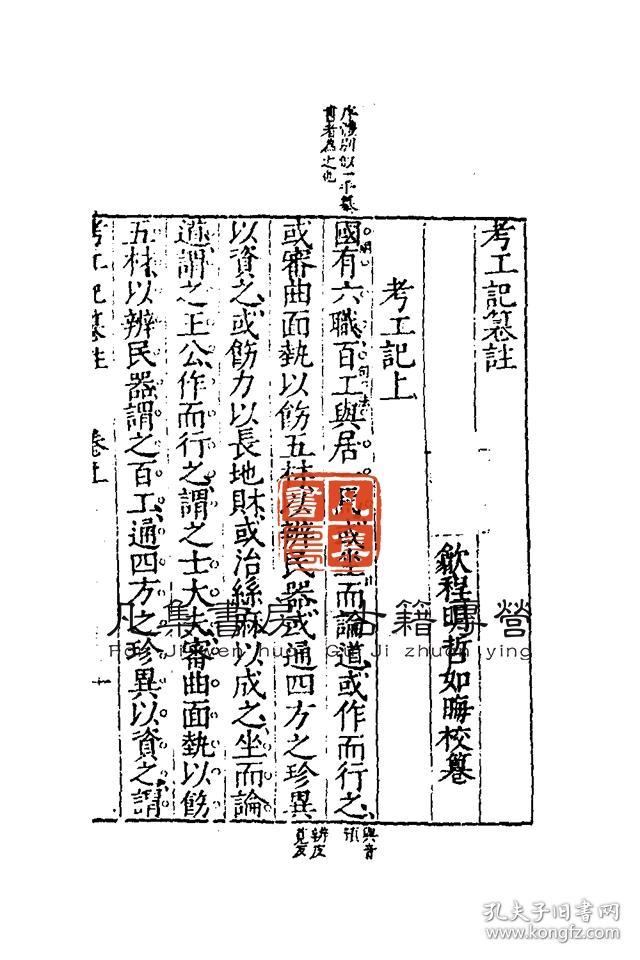 考工記纂註
歙程明哲如晦校纂
考工記上
國有六職百工與居一民或坐而論道或作而行之
或審曲面埶以飭五材以辨民器或通四方之珍異
以資之或飭力以長地財或治絲麻以成之坐而論
道謂之王公作而行之謂之士大夫審曲面埶以飭
五材以辨民器謂之百工通四方之珍異以資之謂
考工記纂註 卷上 一
與音
預
辨皮
莧反
句法
凡集書房 古籍專營
Fan Ji wen huan Gu Ji zhuan ying
孔夫子旧书网
www.kongfz.com